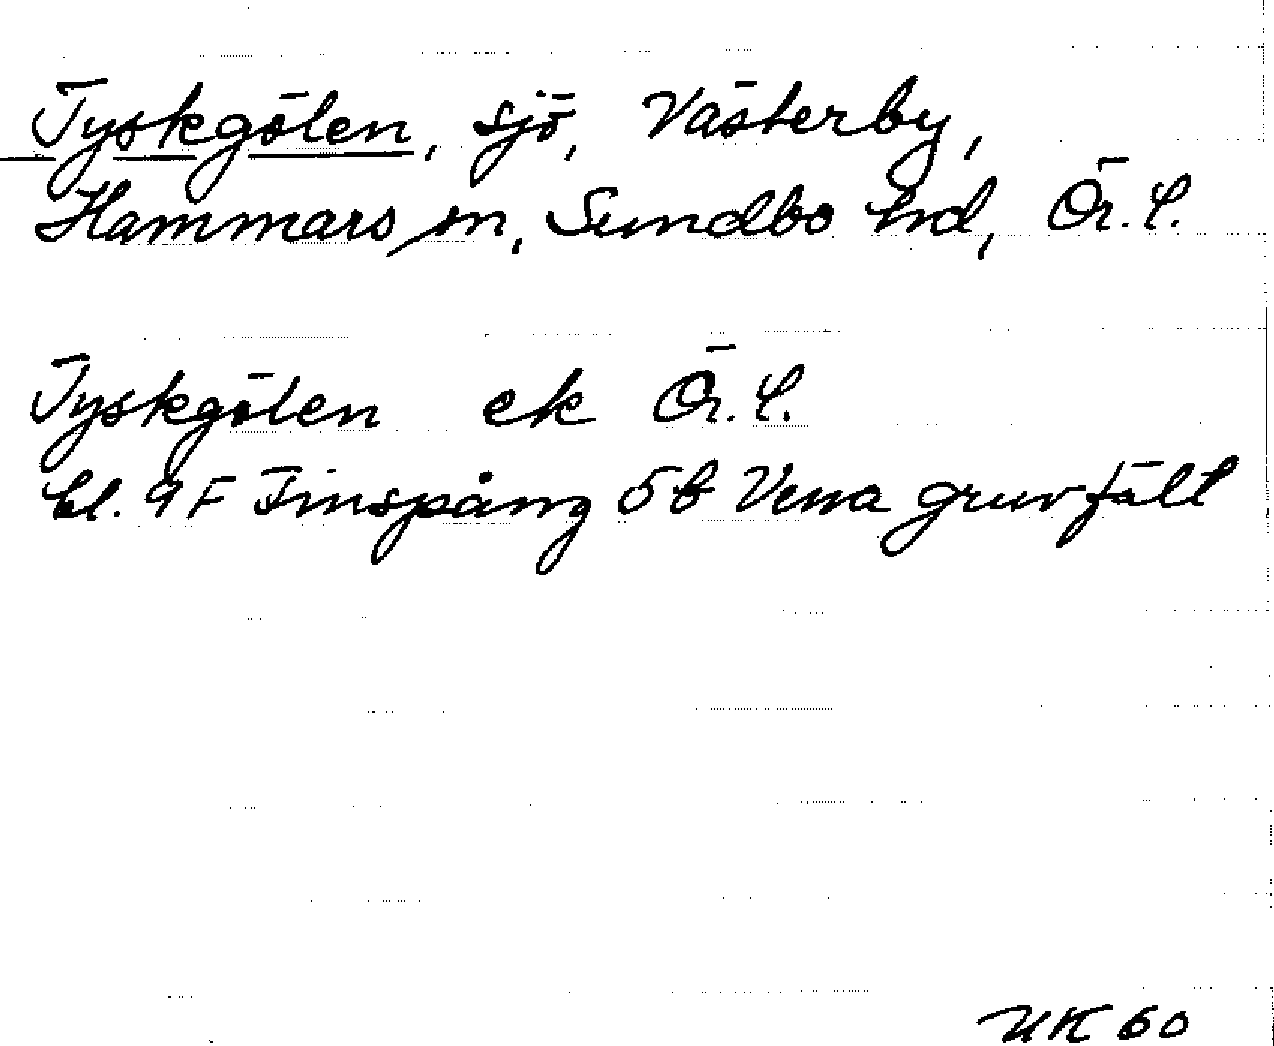 Tyskgölen, sjö, Västerby,
Hammars sn, Sundbo hd, Ör. l.
Tyskgölen ek Ör. l.
bl. 9F Finspång 5b Vena gruvfält
UK 60